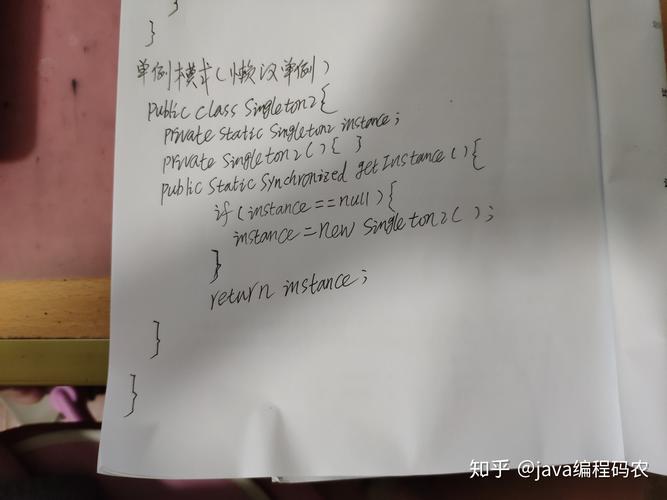 }
}
单例模式(懒汉单例)
public class Singleton2{
private static Singleton2 instance;
private Singleton2(){ }
public static synchronized getInstance(){
if(instance==null){
instance=new Singleton2();
}
return instance;
}
}
知乎 @java编程码农